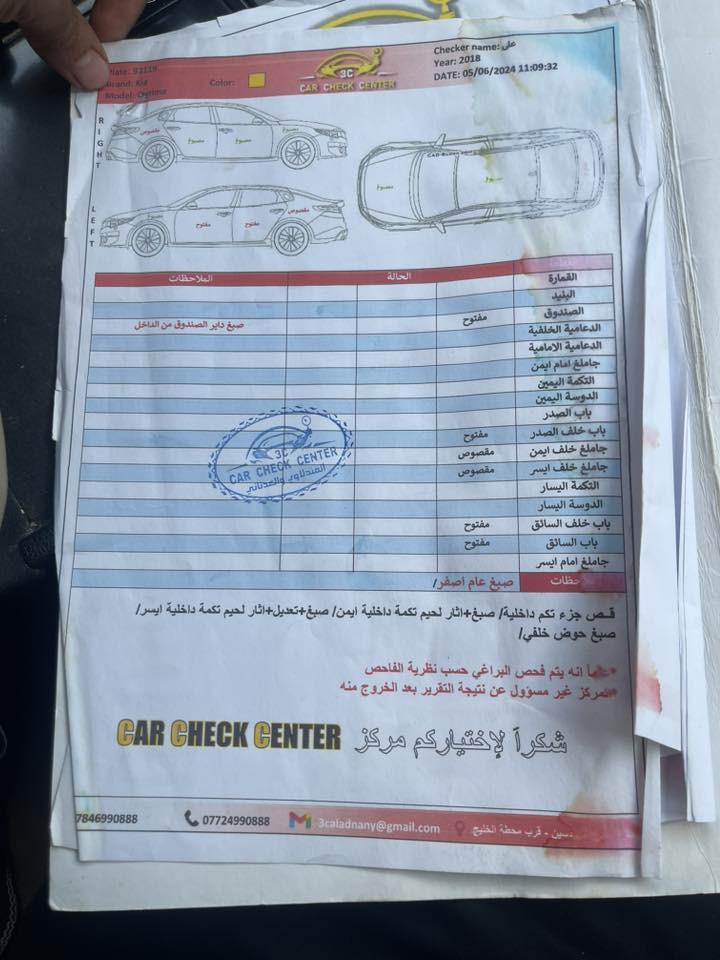 Plate: 93119
Brand: Kia
Model: Optima
Color:
3C
CAR CHECK CENTER
Checker name: علي
Year: 2018
DATE: 05/06/2024 11:09:32
RIGHT
مقصوص
مصبوغ
مصبوغ
مصبوغ
LEFT
مفتوح
مفتوح
مقصوص
مصبوغ
مصبوغ
الحالة
الملاحظات
القمارة
البنيد
الصندوق مفتوح صبغ داير الصندوق من الداخل
الدعامية الخلفية
الدعامية الامامية
جاملغ امام ايمن
التكمة اليمين
الدوسة اليمين
باب الصدر
باب خلف الصدر مفتوح
جاملغ خلف ايمن مقصوص
جاملغ خلف ايسر مقصوص
التكمة اليسار
الدوسة اليسار
باب خلف السائق مفتوح
باب السائق مفتوح
جاملغ امام ايسر
صبغ عام اصفر/
3C
CAR CHECK CENTER
المندلاوي والعدناني
قص جزء تكم داخلية/ صبغ+اثار لحيم تكمة داخلية ايمن/ صبغ+تعديل+اثار لحيم تكمة داخلية ايسر/
صبغ حوض خلفي/
انه يتم فحص البراغي حسب نظرية الفاحص
المركز غير مسؤول عن نتيجة التقرير بعد الخروج منه
شكراً لإختياركم مركز CAR CHECK CENTER
7846990888
07724990888
3caladnany@gmail.com
قرب محطة الخليج